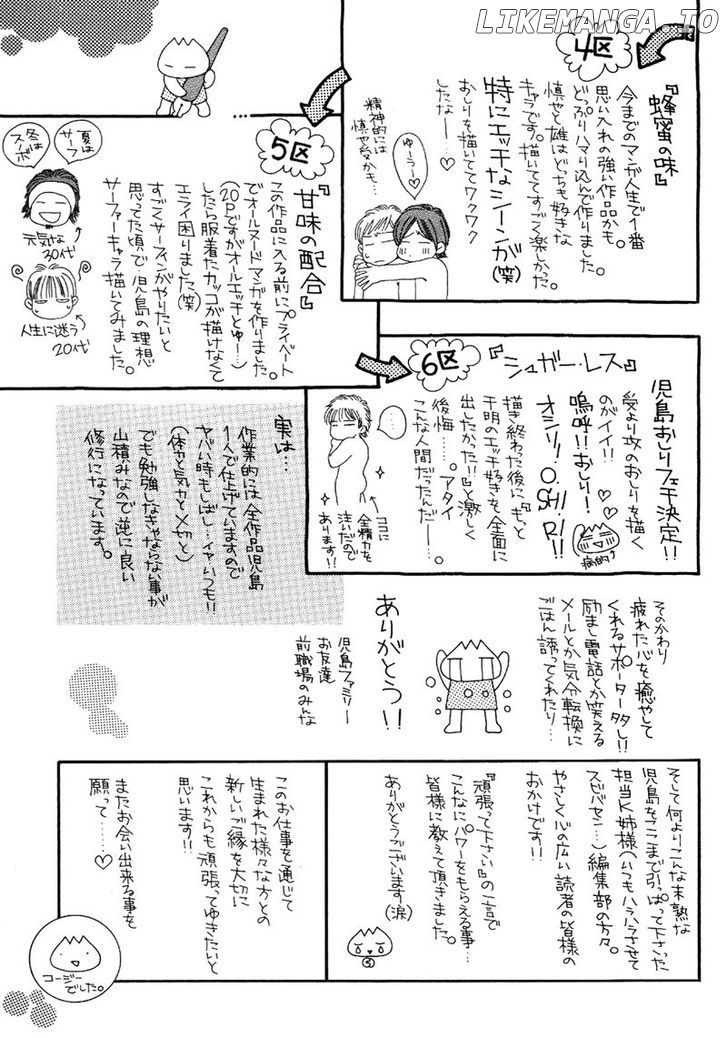 LIKEMANGA.IO
4区
『蜂蜜の味』
今までのマンガ人生で1番
思い入れの強い作品かも。
どっぷりハマり込んで作りました。
慎也と雄はどっちも好きな
キャラです。描いててすごく楽しかった。
特にエッチなシーンが(笑)
おしりを描いててワクワク
したなー♡
ゆーうー♡
精神的には
慎也受かも…
5区
『甘味の配合』
この作品に入る前にプライベート
でオールヌードマンガを作りました。
(20Pですがオールエッチとゆ!…)
したら服着たカッコが描けなくて
エライ困りました(笑)
すごくサーフィンがやりたいと
思ってた頃で、児島の理想
サーファーキャラ描いてみました。
夏は
サーフ
冬は
スノボ
元気な
30代
人生に迷う
20代
6区
『シュガー・レス』
児島おしりフェチ決定!!
受より攻のおしりを描く
のがイイ!!♡♡
嗚呼!!おしり!
オシリ!O.SHI.RI!!
病的
描き終わった後に『もっと
千明のエッチ好きを全面に
出したかった!!』と激しく
後悔……。アタイ
こんな人間だったんだー。
……
ココに
全精力を
注いだので
あります!!
実は…
作業的には全作品児島
1人で仕上げていますので
ヤバい時もしばし…イヤいつも!!
(体力と気力と〆切と)
でも勉強しなきゃならない事が
山積みなので逆に良い
修行になっています。
そのかわり
疲れた心を癒やして
くれるサポーター多し!!
励まし電話とか笑える
メールとか気分転換に
ごはん誘ってくれたり…
ありがとう!!
児島ファミリー
お友達
前職場のみんな
そして何よりこんな未熟な
児島をここまで引っぱって下さった
担当K姉様(いつもハラハラさせて
スビバセン…)編集部の方々。
やさしく心の広い読者の皆様の
おかげです!!
『頑張って下さい』の一言で
こんなにパワーをもらえる事…
皆様に教えて頂きました。
ありがとうございます(涙)
このお仕事を通じて
生まれた様々な方との
新しいご縁を大切に
これからも頑張ってゆきたいと
思います!!
またお会い出来る事を
願って……♡
コージー
でした。